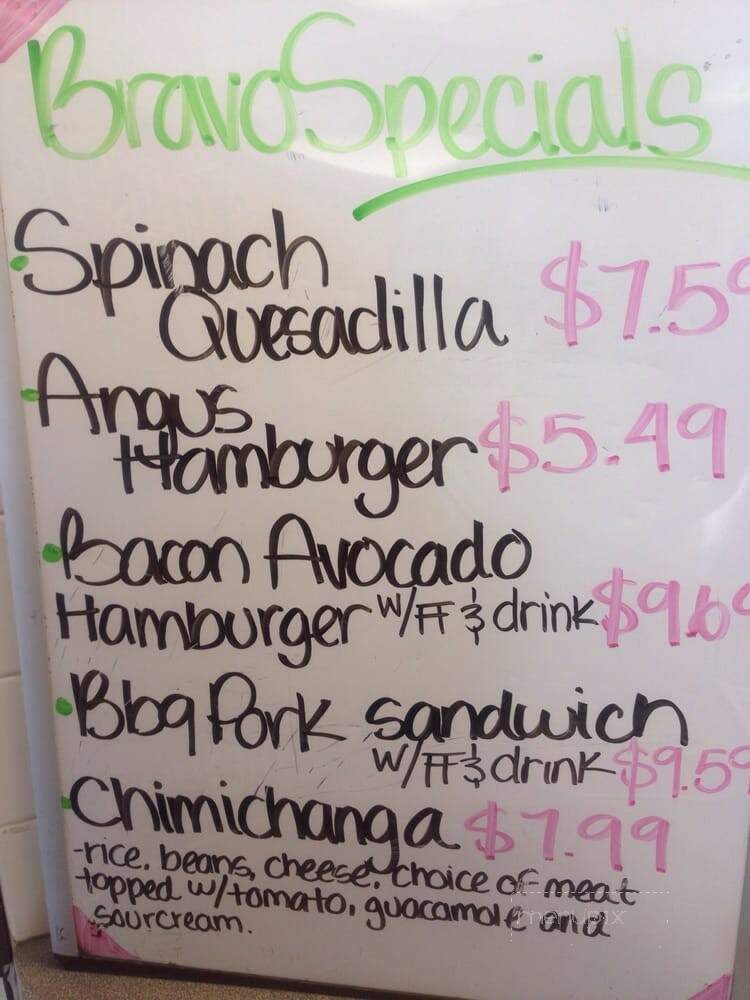 Bravo Specials
Spinach
Quesadilla
Angus
Hamburger $5.49
Bacon Avocado
Hamburger w/FF & drink
Bbq Pork sandwich
w/FF & drink
Chimichanga $7.99
-rice, beans, cheese, choice of meat
topped w/tomato, guacamole and
sourcream.